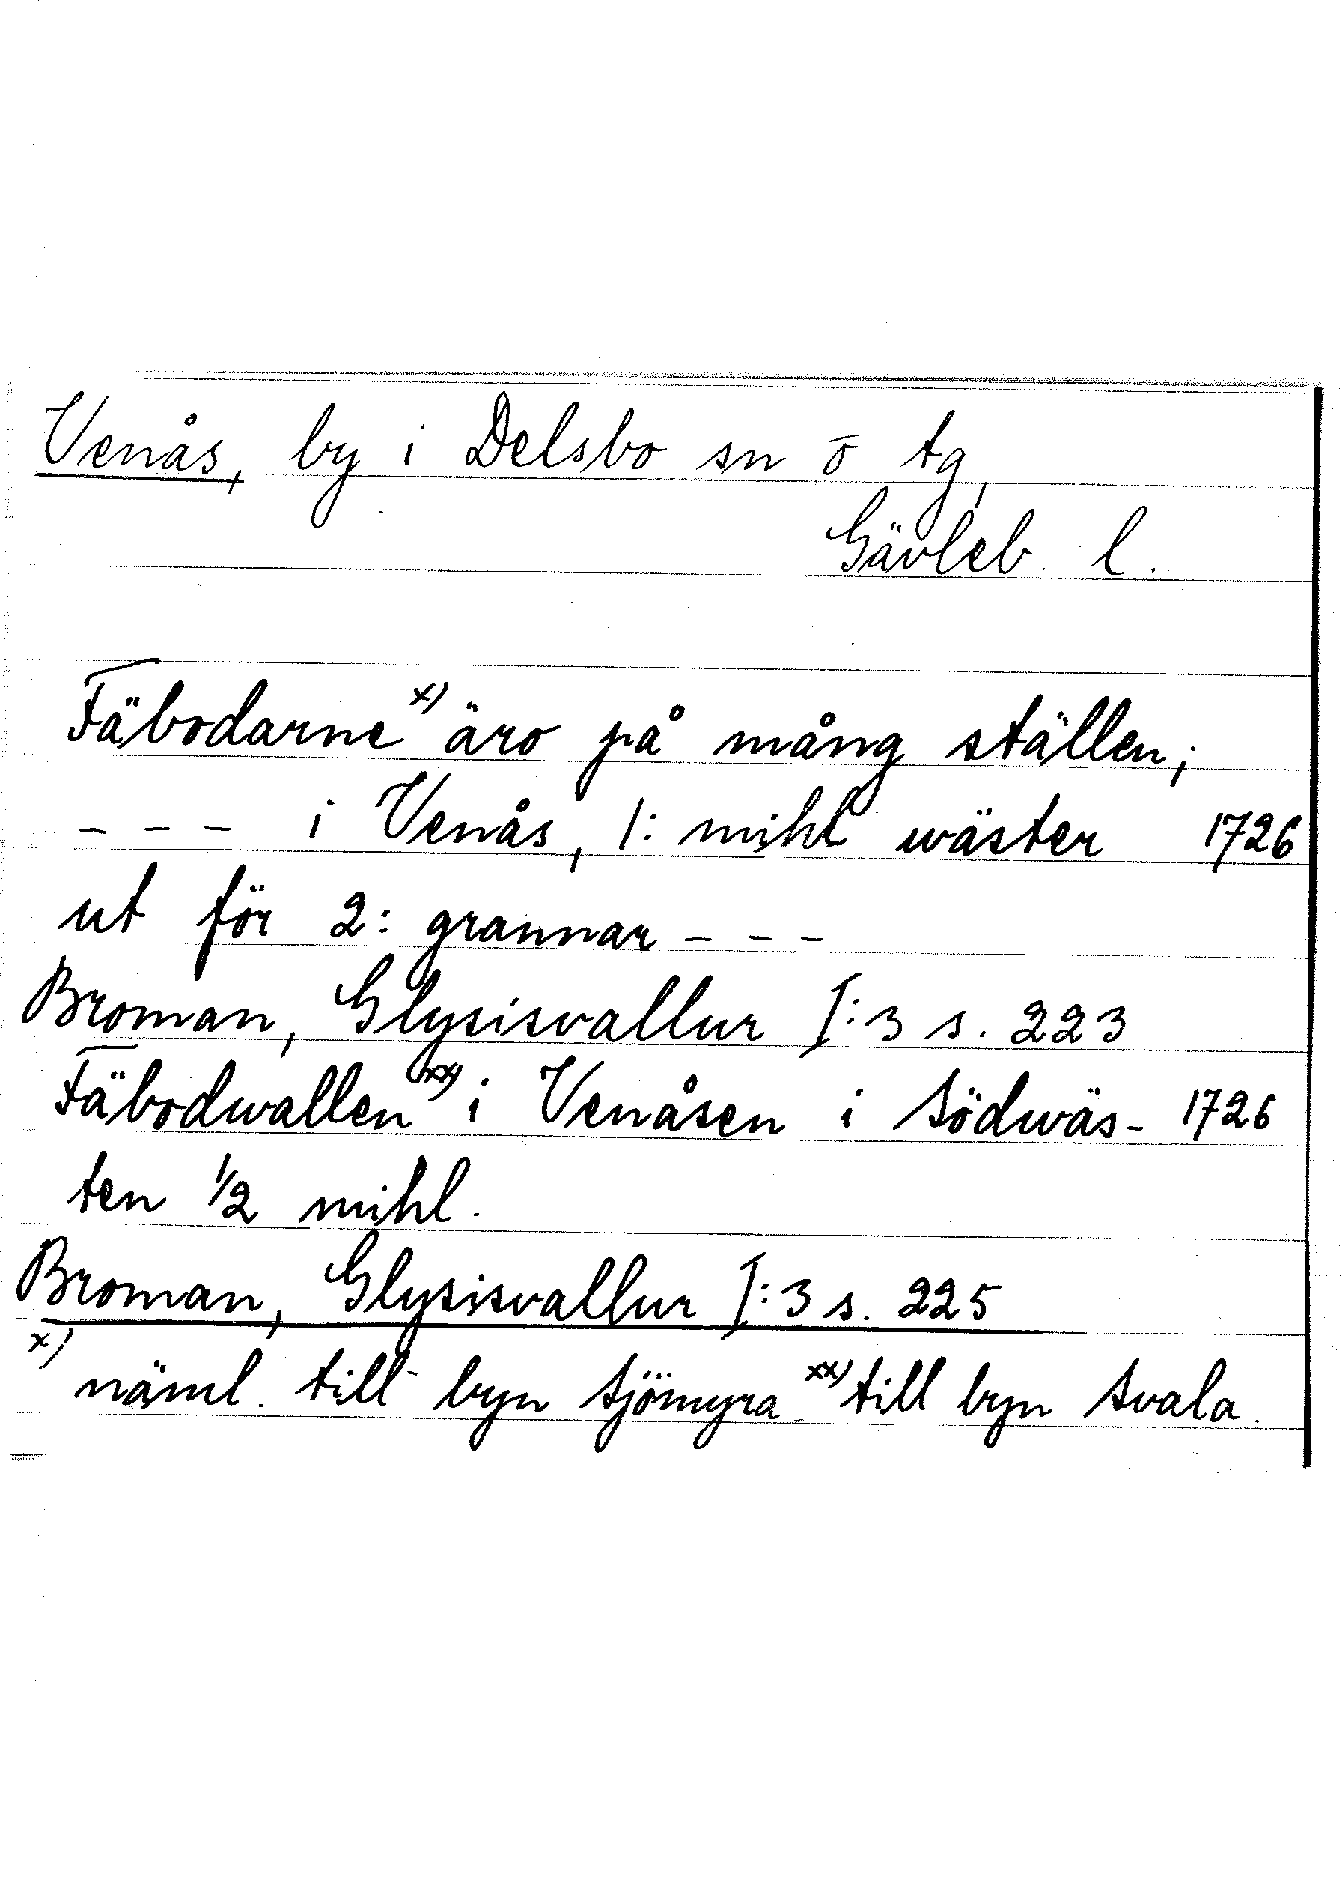 Venås, by i Delsbo sn o tg,
Gävleb. l.
Fäbodarne x) äro på mång ställen;
- - - i Venås, 1: mihl wäster 1726
ut för 2: grannar - - -
Broman, Glysisvallur I:3 s. 223
Fäbodwallen xx) i Venåsen i Södwäs- 1726
ten 1/2 mihl.
Broman, Glysisvallur I:3 s. 225
x) näml. till byn Sjömyra. xx) till byn Svala.